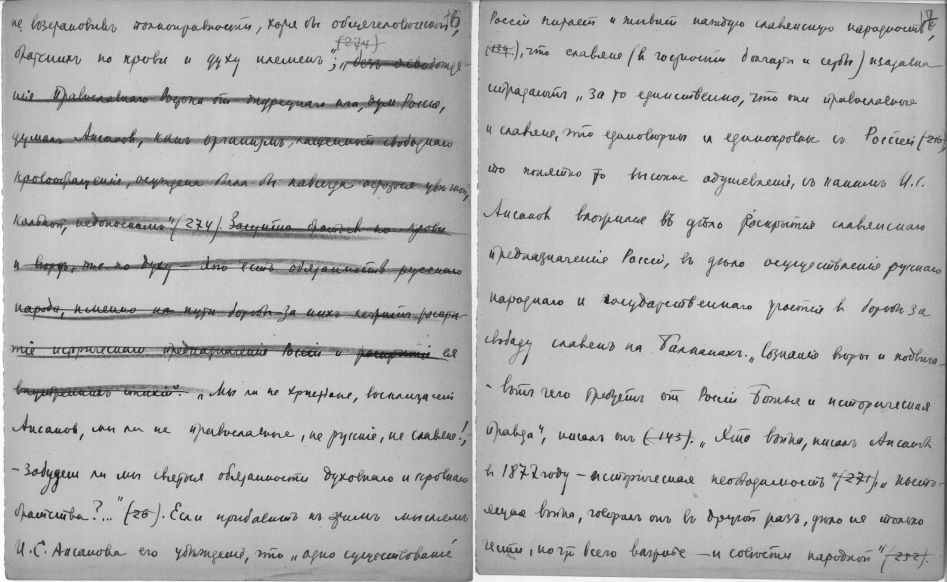 16
не возстановивъ полноправности, хотя въ общечеловеческой,
братскихъ по крови и духу племенъ; (274)
"безъ освобожде-
нія Православнаго Востока отъ инороднаго ига, думъ Россіи,
думалъ Аксаковъ, какъ организмъ, лишенный свободнаго
кровообращенія, осуждена была бы навсегда остаться
недоноскомъ" (274). Защита братьевъ по крови
и вѣрѣ, по духу – это есть обязанность русскаго
народа, именно на пути борьбы за нихъ лежитъ раскры-
тіе историческаго предназначенія Россіи и раскрытіе ея
внутреннихъ стихій". "Мы ли не христіане, восклицаетъ
Аксаковъ, мы ли не православные, не русскіе, не славяне!,
– забудем ли мы святыя обязанности духовнаго и кровнаго
братства?.." (26). Если прибавить къ этимъ мыслямъ
И.С. Аксакова его убѣжденіе, что "одно существованіе
17
Россіи питаетъ и живитъ каждую славянскую народность",
(134), что славяне (въ частности болгары и сербы) издавна
страдаютъ "за то единственно, что они православные
и славяне, что единовѣрны и единокровны съ Россіей (216),
то понятно то высокое одушевленіе, съ какимъ И.С.
Аксаковъ вложился въ дѣло раскрытія славянскаго
предназначенія Россіи, въ дѣло осуществленія русскаго
народнаго и государственнаго участія въ борьбѣ за
свободу славянъ на Балканахъ. "Сознанія вѣры и подвига
– вотъ чего требуетъ отъ Россіи Божья и историческая
правда", писалъ онъ (143). "Эта война, писалъ Аксаковъ
въ 1877 году – историческая необходимость" (271), "насто-
ящая война, говорилъ онъ въ другой разъ, дѣло не только
чести, но всего – и совѣсти народной" (252).